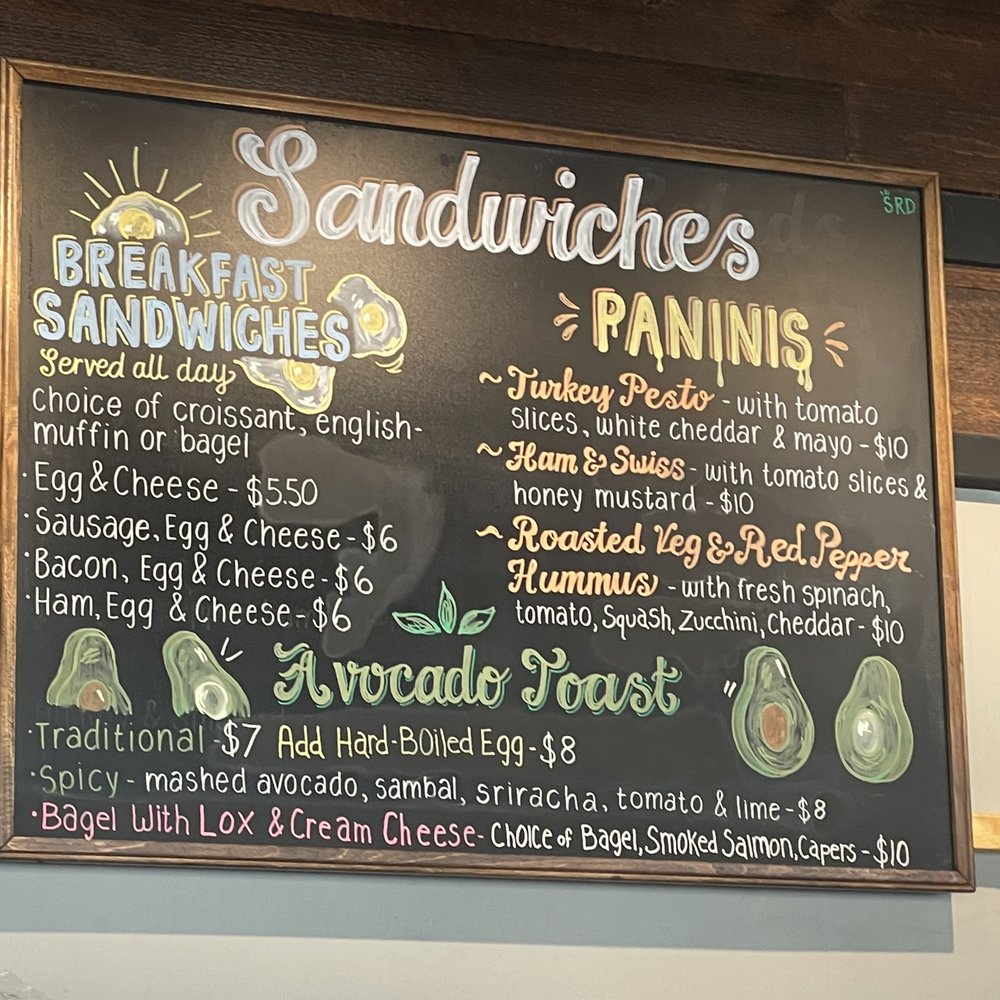 Sandwiches
SRD
BREAKFAST
SANDWICHES
Served all day
Choice of croissant, english-
muffin or bagel
· Egg & Cheese - $5.50
· Sausage, Egg & Cheese - $6
· Bacon, Egg & Cheese - $6
· Ham, Egg & Cheese - $6
PANINIS
~ Turkey Pesto - with tomato
slices, white cheddar & mayo - $10
~ Ham & Swiss - with tomato slices &
honey mustard - $10
~ Roasted Veg & Red Pepper
Hummus - with fresh spinach,
tomato, Squash, Zucchini, Cheddar - $10
Avocado Toast
· Traditional - $7 Add Hard-BOiled Egg - $8
· Spicy - mashed avocado, sambal, sriracha, tomato & lime - $8
· Bagel With Lox & Cream Cheese - CHOICe of Bagel, Smoked Salmon, Capers - $10